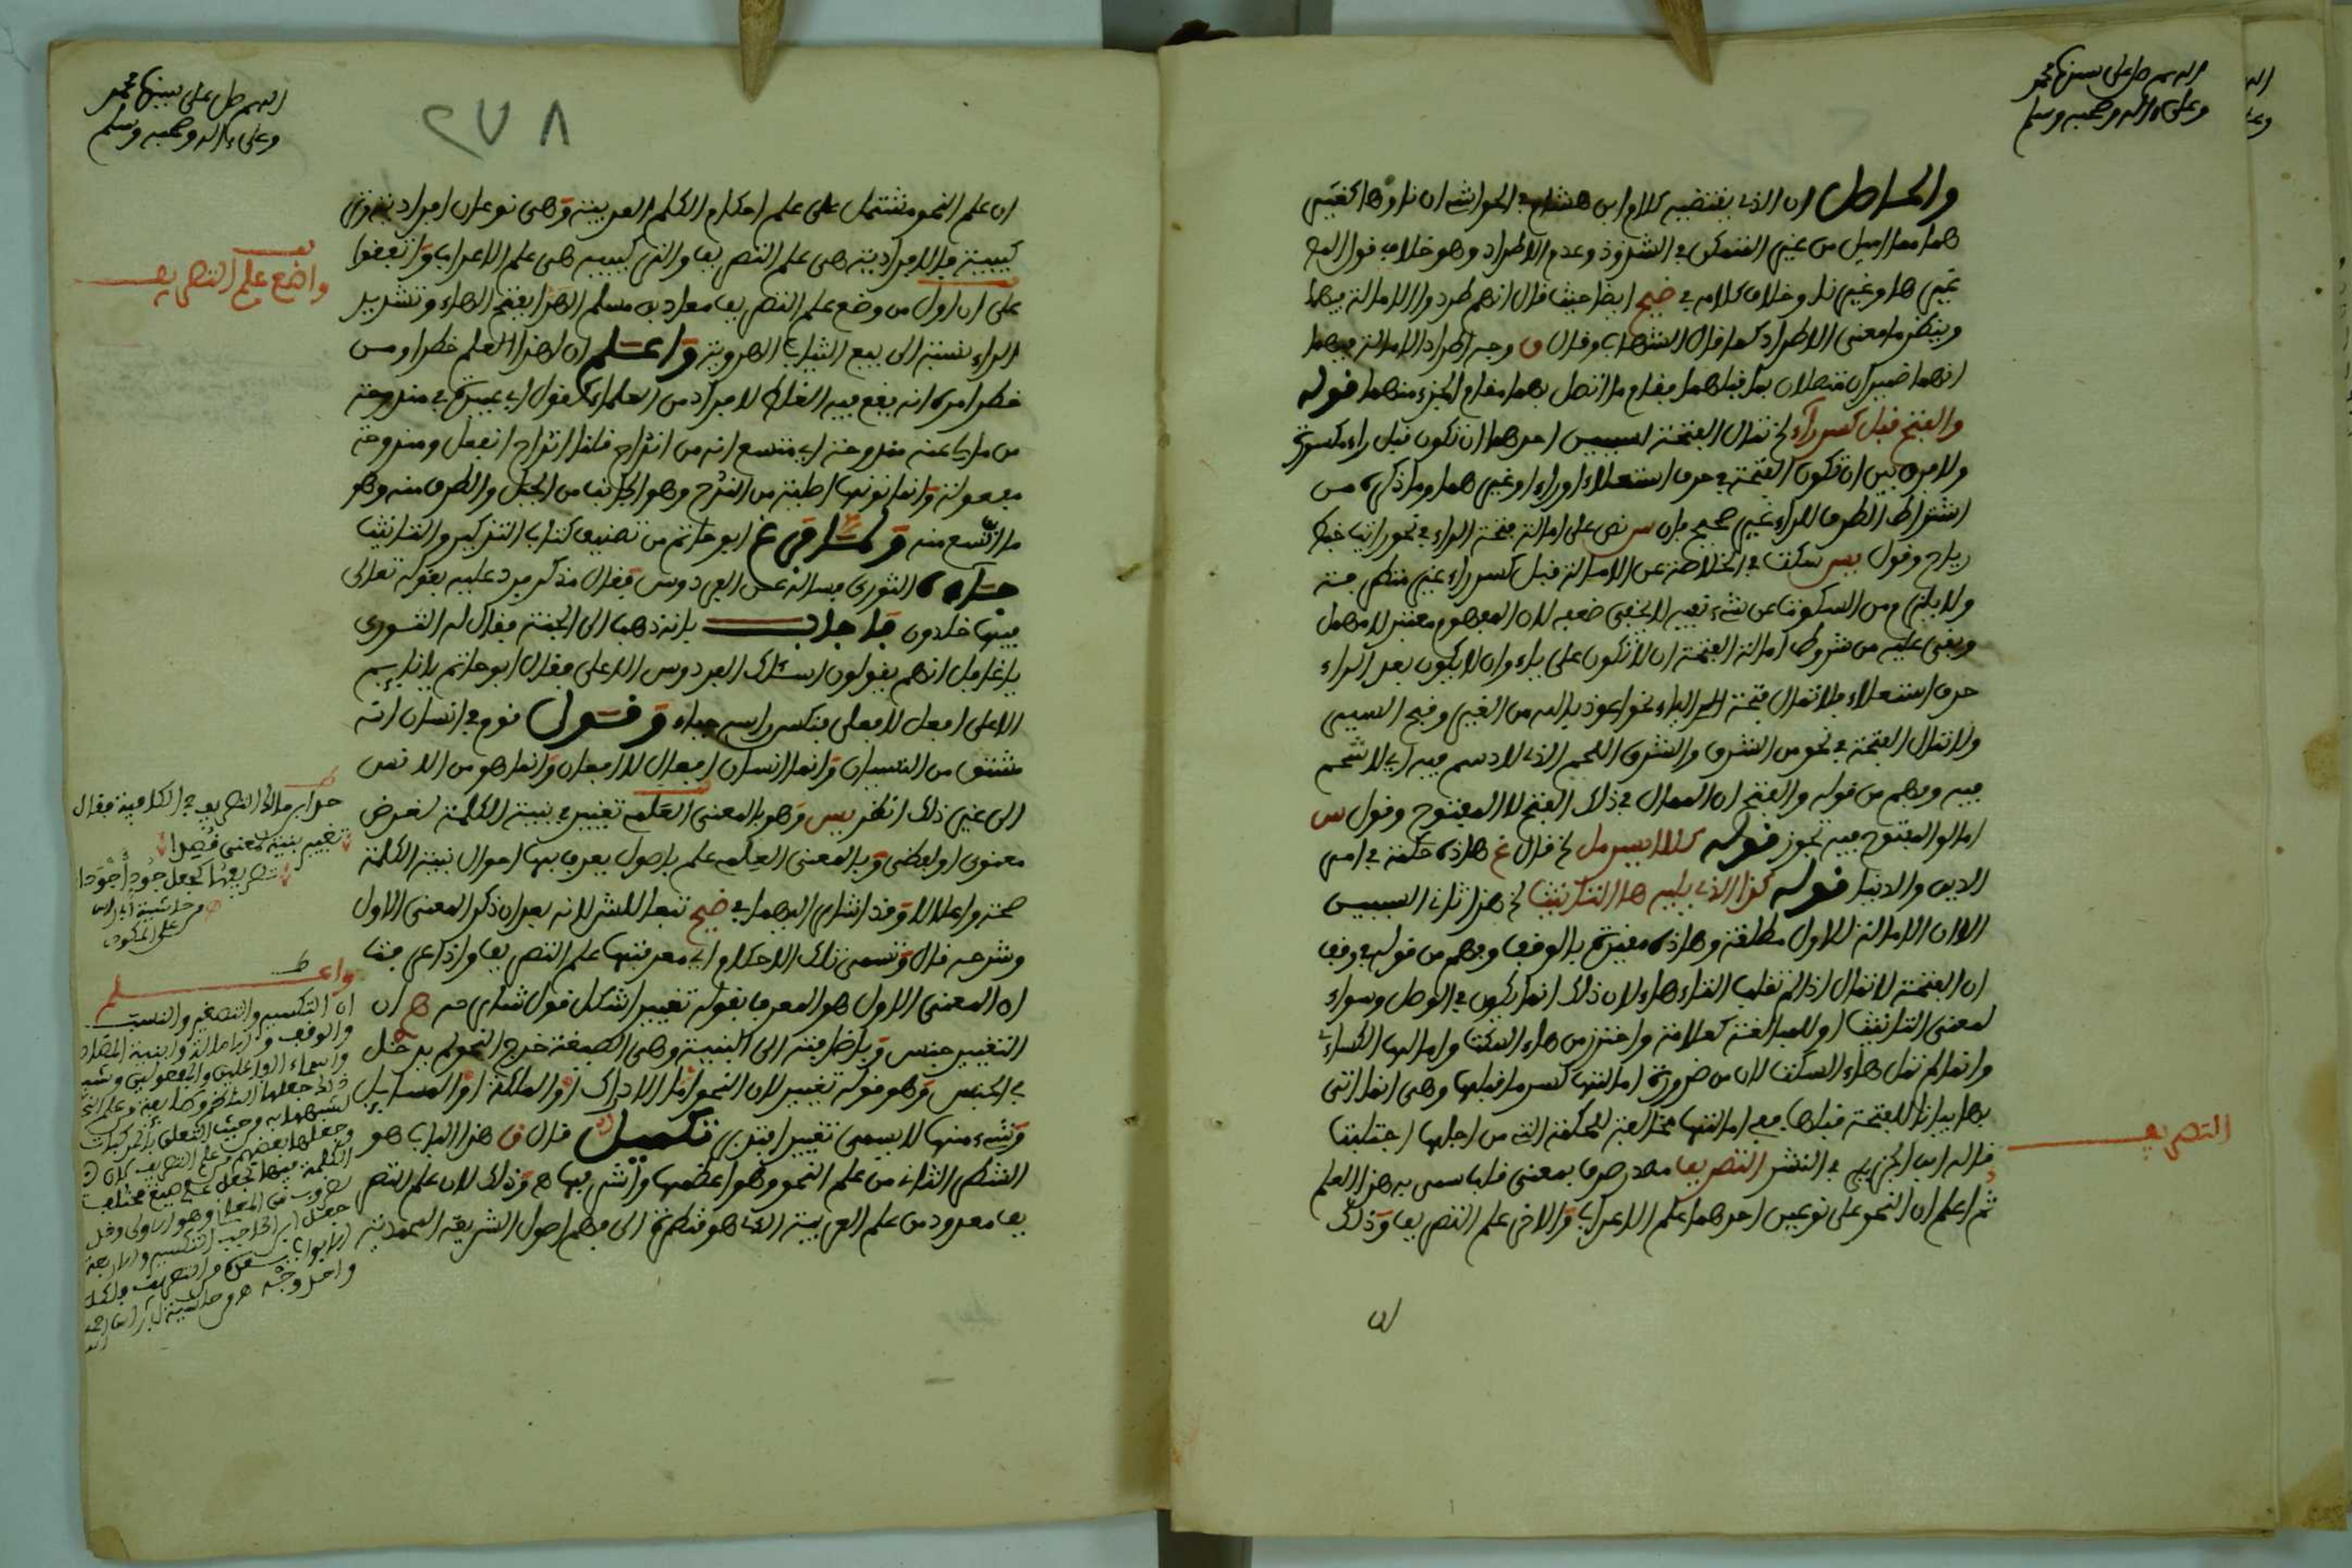 اللهم صل على سيدنا محمد
وعلى ءاله وصحبه وسلم
والحاصل ان الذي يقتضيه كلام ابن هشام في الحواشي ان نا وها كغير
هما مما اميل من غير المتمكن في الشذوذ وعدم الاطراد وهو خلاف قول المص
غير ها وغير نا وخلاف كلامه في ضيح ايضا حيث قال انهم طردوا الامالة فيهما
وينظر ما معنى الاطراد كما قال الشهاب وقال ق وجه اطراد الامالة فيهما
انهما ضميران متصلان بما قبلهما فقام ما اتصل بهما مقام الجزء منهما قوله
والفتح قبل كسر راء الخ تمال الفتحة لسببين احدهما ان تكون قبل راء مكسورة
ولا فرق بين ان تكون الفتحة في حرف استعلاء او راء او غيرهما وما ذكره من
اشتراط الطرف للراء غير صحيح فان س نص على امالة فتحة الراء في نحو رايت خبط
رياح وقول يس سكت في الخلاصة عن الامالة قبل كسر راء غير متطرفة
ولا يلزم من السكوت عن شيء نفيه لا يخفى ضعفه لان المفهوم معتبر لا مهمل
وبقي عليه من شروط امالة الفتحة ان لا تكون على ياء وان لا يكون بعد الراء
حرف استعلاء فلا تمال فتحة الياء نحو اعوذ بالله من الغير وقبح السير
ولا تمال الفتحة في نحو من الشرق والشرق اللحم الذي لا دسم فيه اي لا شحم
فيه وفهم من قوله والفتح ان الممال في ذلك الفتح لا المفتوح وقول س
امالوا المفتوح فيه تجوز قوله كللايسر مل الخ قال غ هذه حكمة في امر
الدين والدنيا قوله كذا الذي يليه ها التانيث الخ هذا ثاني السببين
الا ان الامالة للاول مطلقة وهذه مقيدة بالوقف وفهم من قوله في وقف
ان الفتحة لا تمال اذا لم تقلب التاء هاء لان ذلك انما يكون في الوصل وسواء
لمعنى التانيث او للمبالغة كعلامة واحترز من هاء السكت وامالها الكساءي
وانما لم تمل هاء السكت لان من ضرورة امالتها كسر ما قبلها وهي انما اتى
بها بيانا للفتحة قبلها ففي امالتها مخالفة للحكمة التي من اجلها اجتلبت
قاله ابن الجزري في النشر التصريف مصدر صرف بمعنى قلب سمى به هذا العلم
ثم اعلم ان النحو على نوعين احدهما علم الاعراب والاخر علم التصريف وذلك
التصريف
ان
اللهم صل على سيدنا محمد
وعلى ءاله وصحبه وسلم
٢٧٨
ان علم النحو مشتمل على علم احكام الكلم العربية وهي نوعان افرادية وتر
كيبية فالافرادية هي علم التصريف والتركيبية هي علم الاعراب واتفقوا
على ان اول من وضع علم التصريف معاذ بن مسلم الهرا بفتح الهاء وتشديد
الراء نسبة الى بيع الثياب الهروية واعلم ان لهذا العلم خطرا ومن
خطرا مره انه يقع فيه الغلط لافراد من العلماء كقول ابي عبيدة في مندوحة
من مالي عنه مندوحة اي متسع انه من انداح قلنا انداح انفعل ومندوحة
مفعولة وانما نونها اصلية من الندح وهو الجانب من الجبل والطرف منه وهو
ما اتسع منه وكما فرغ ابو حاتم من تصنيف كتاب التذكير والتانيث
جاءه الثوري فساله عن الفردوس فقال مذكر فرد عليه بقوله تعالى
فيها خالدون فاجاب بانه ذهب الى الجنة فقال له الثوري
يا غافل انهم يقولون اسئلك الفردوس الاعلى فقال ابو حاتم يا نايم
الاعلى افعل لا فعلى فنكس راسه حياء وقول قوم في انسان انه
مشتق من النسيان وانما انسان افعال لا افعان وانما هو من الانس
الى غير ذلك انظر يس وهو بالمعنى العملي تغيير في بنية الكلمة لغرض
معنوي او لفظي وبالمعنى العلمي علم باصول يعرف بها احوال بنية الكلمة
صحة واعلالا وقد اشار اليهما في ضيح تبعا للشر لانه بعد ان ذكر المعنى الاول
وشرحه قال وتسمى تلك الاحكام اي معرفتها علم التصريف واذا عرفت
ان المعنى الاول هو المعرف بقوله تغيير اشكل قول شارحه هم ان
التغيير جنس وباضافته الى البنية وهي الصيغة خرج النحو لم يدخل
في الجنس وهو قوله تغيير لان النحو اما الادراك او الملكة او المسايل
وشيء منها لا يسمى تغييرا فتدبر تكميل قال ق هذا الباب هو
الشطر الثاني من علم النحو وهو اعظمها واشرفها هـ وذلك لان علم التصر
يف معدود من علم العربية الذي هو شطر في الى فهم اصول الشريعة المحمدية
واضع علم التصريف
حد ابن مالك التصريف في الكافية فقال
تغيير بنية لمعنى قصدا
تصريفها كجعل جود اجودا
من حاشية
على المكودي
واعلم
ان التكسير والتصغير والنسب
والوقف والامالة وابنية المصادر
واسماء الفاعلين والمفعولين وشبه